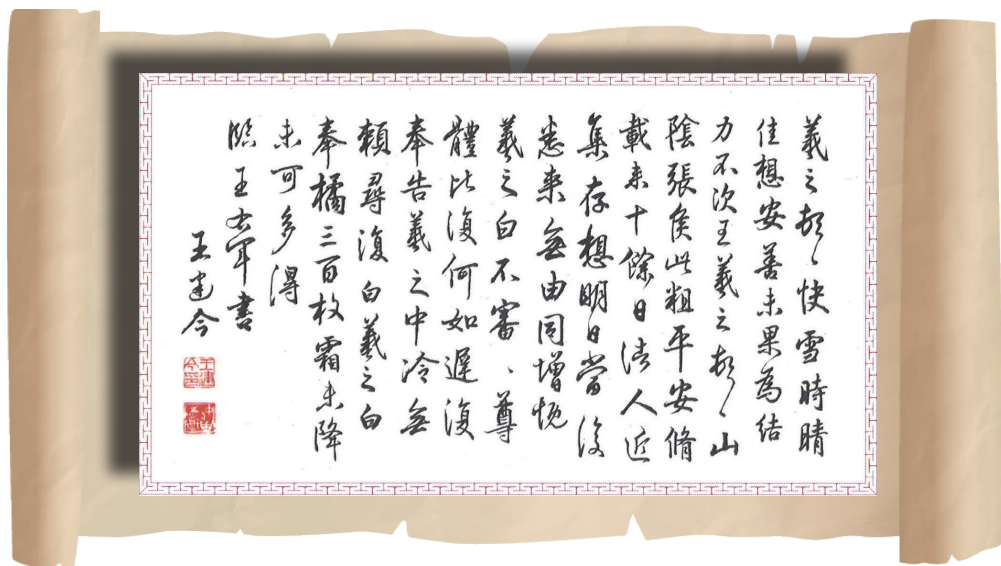 羲之頓〻快雪時晴
佳想安善未果為結
力不次王羲之頓〻山
陰張侯此粗平安脩
載来十餘日諸人近
集存想明日當復
悉来無由同增慨
羲之白不審、尊
體比復何如遲復
奉告羲之中冷無
賴尋復白羲之白
奉橘三百枚霜未降
未可多得
臨王右軍書
王建今